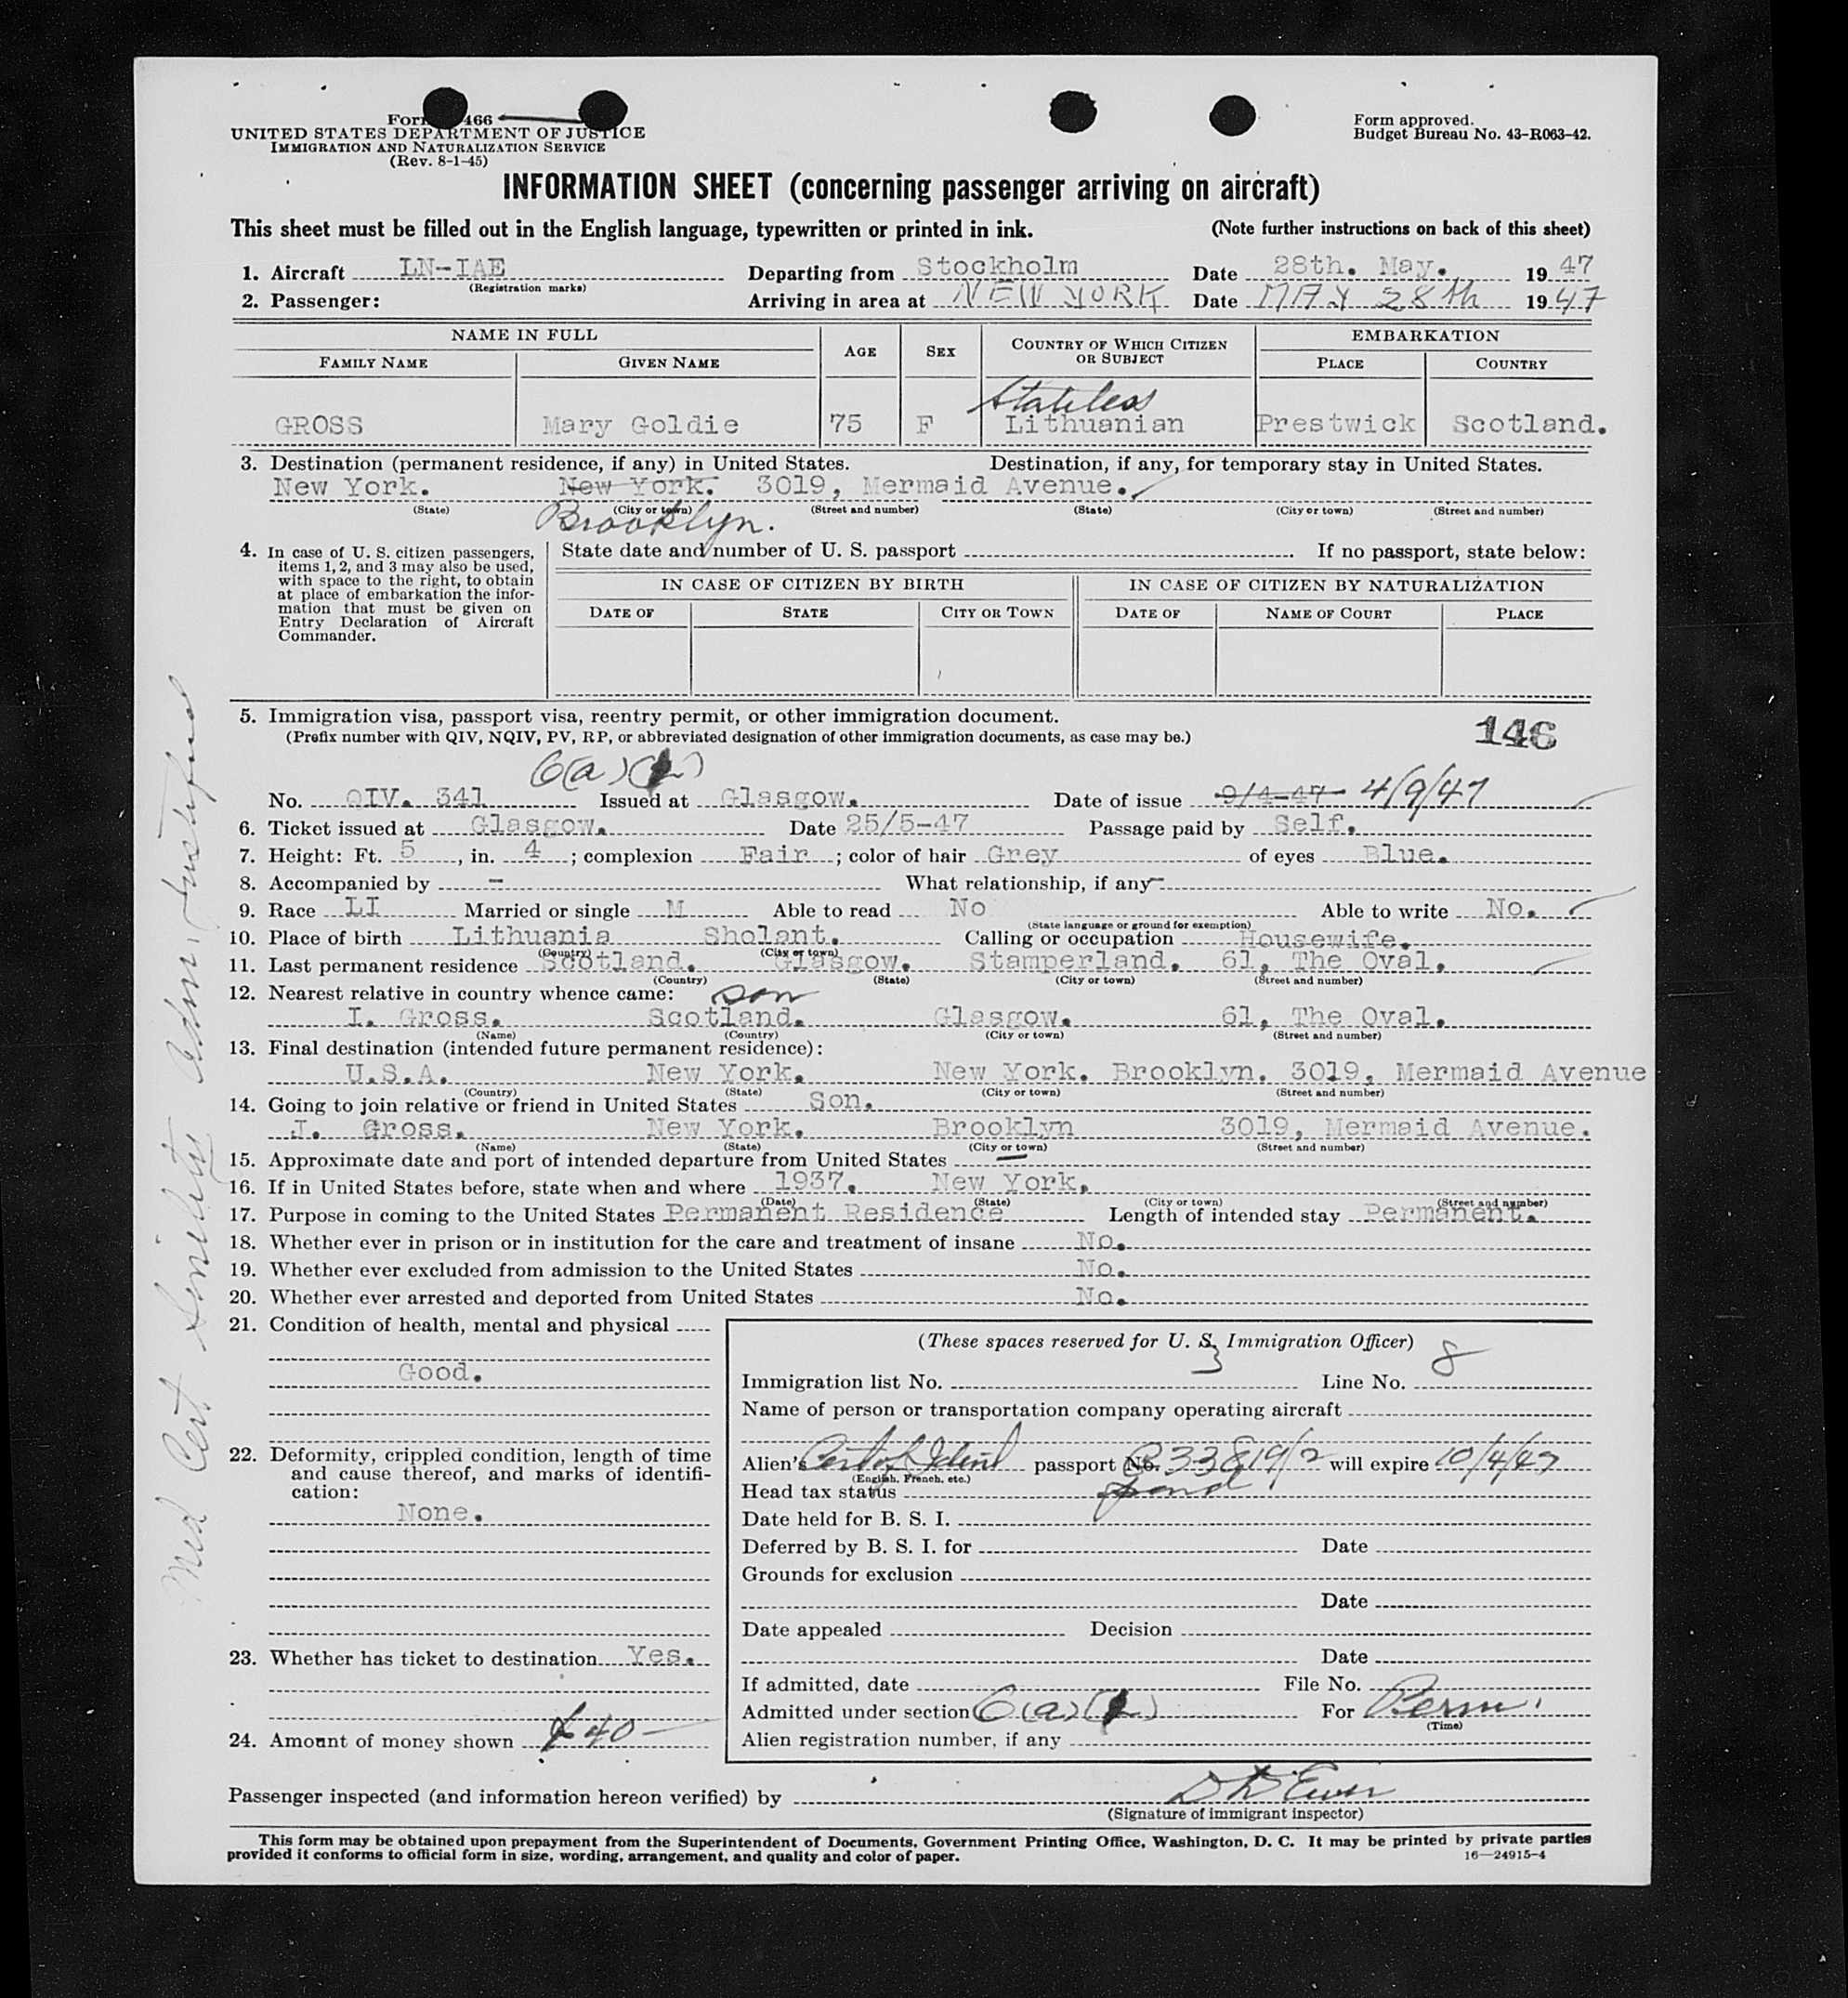 Form 466
UNITED STATES DEPARTMENT OF JUSTICE
IMMIGRATION AND NATURALIZATION SERVICE
(Rev. 8-1-45)
Form approved.
Budget Bureau No. 43-R063-42.
INFORMATION SHEET (concerning passenger arriving on aircraft)
This sheet must be filled out in the English language, typewritten or printed in ink. (Note further instructions on back of this sheet)
1. Aircraft LN-IAE Departing from Stockholm Date 28th. May. 1947
(Registration marks)
2. Passenger: Arriving in area at NEW YORK Date MAY 28th 1947
NAME IN FULL AGE SEX COUNTRY OF WHICH CITIZEN OR SUBJECT EMBARKATION
FAMILY NAME GIVEN NAME PLACE COUNTRY
Stateless
GROSS Mary Goldie 75 F Lithuanian Prestwick Scotland.
3. Destination (permanent residence, if any) in United States. Destination, if any, for temporary stay in United States.
New York. New York. 3019, Mermaid Avenue.
(State) (City or town) (Street and number) (State) (City or town) (Street and number)
Brooklyn.
4. In case of U. S. citizen passengers, items 1, 2, and 3 may also be used, with space to the right, to obtain at place of embarkation the information that must be given on Entry Declaration of Aircraft Commander.
State date and number of U. S. passport If no passport, state below:
IN CASE OF CITIZEN BY BIRTH IN CASE OF CITIZEN BY NATURALIZATION
DATE OF STATE CITY OR TOWN DATE OF NAME OF COURT PLACE
5. Immigration visa, passport visa, reentry permit, or other immigration document.
(Prefix number with QIV, NQIV, PV, RP, or abbreviated designation of other immigration documents, as case may be.)
146
No. QIV. 341 Issued at Glasgow. Date of issue 9/4-47 4/9/47
6. Ticket issued at Glasgow. Date 25/5-47 Passage paid by Self.
7. Height: Ft. 5, in. 4; complexion Fair; color of hair Grey of eyes Blue.
8. Accompanied by - What relationship, if any -
9. Race LI Married or single M Able to read No Able to write No.
(State language or ground for exemption)
10. Place of birth Lithuania Sholant. Calling or occupation Housewife.
(Country) (City or town)
11. Last permanent residence Scotland. Glasgow. Stamperland. 61, The Oval.
(Country) (State) (City or town) (Street and number)
12. Nearest relative in country whence came: son
I. Gross. Scotland. Glasgow. 61, The Oval.
(Name) (Country) (City or town) (Street and number)
13. Final destination (intended future permanent residence):
U.S.A. New York. New York. Brooklyn. 3019, Mermaid Avenue
(Country) (State) (City or town) (Street and number)
14. Going to join relative or friend in United States Son.
J. Gross. New York. Brooklyn 3019, Mermaid Avenue.
(Name) (State) (City or town) (Street and number)
15. Approximate date and port of intended departure from United States —
16. If in United States before, state when and where 1937. New York.
(Date) (State) (City or town) (Street and number)
17. Purpose in coming to the United States Permanent Residence Length of intended stay Permanent.
18. Whether ever in prison or in institution for the care and treatment of insane No.
19. Whether ever excluded from admission to the United States No.
20. Whether ever arrested and deported from United States No.
21. Condition of health, mental and physical
Good.
22. Deformity, crippled condition, length of time and cause thereof, and marks of identification:
None.
23. Whether has ticket to destination Yes.
24. Amount of money shown £40-
(These spaces reserved for U. S. Immigration Officer)
Immigration list No. 3 Line No. 8
Name of person or transportation company operating aircraft
Alien's Cert of Ident passport No. 33819/2 will expire 10/4/47
(English, French, etc.)
Head tax status
Date held for B. S. I.
Deferred by B. S. I. for Date
Grounds for exclusion
Date
Date appealed Decision
Date
If admitted, date File No.
Admitted under section 6(a)( ) For Perm.
(Time)
Alien registration number, if any
Passenger inspected (and information hereon verified) by
(Signature of immigrant inspector)
This form may be obtained upon prepayment from the Superintendent of Documents, Government Printing Office, Washington, D. C. It may be printed by private parties
provided it conforms to official form in size, wording, arrangement, and quality and color of paper. 16—24915-4
Med Cert Senility Admn